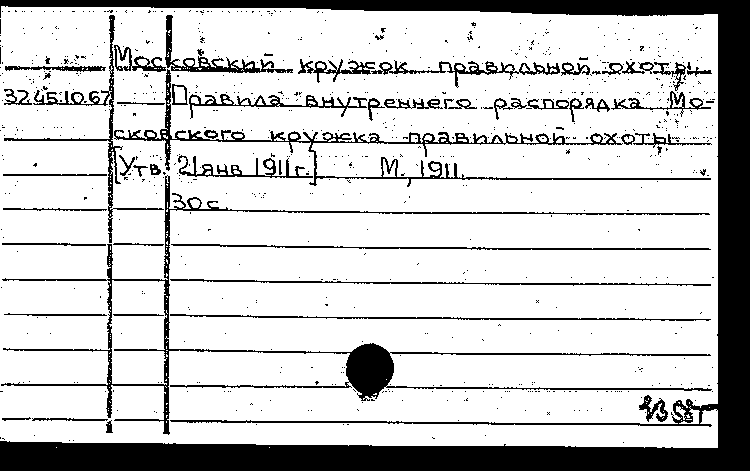 Московский кружок правильной охоты.
32.45.10.67 Правила внутреннего распорядка Мо-
сковского кружка правильной охоты.
[Утв. 21 янв 1911г.] М., 1911.
30 с.